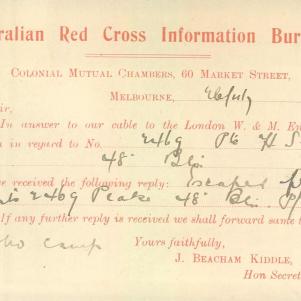 ralian Red Cross Information Bur
COLONIAL MUTUAL CHAMBERS, 60 MARKET STREET,
MELBOURNE, 26 July
ir,
In answer to our cable to the London W. & M. En
in regard to No. 2469 Pte H S
48 Bn
e received the following reply: Escaped
2469 Peake 48 Bn
If any further reply is received we shall forward same t
Camp Yours faithfully,
J. BEACHAM KIDDLE,
Hon Secret